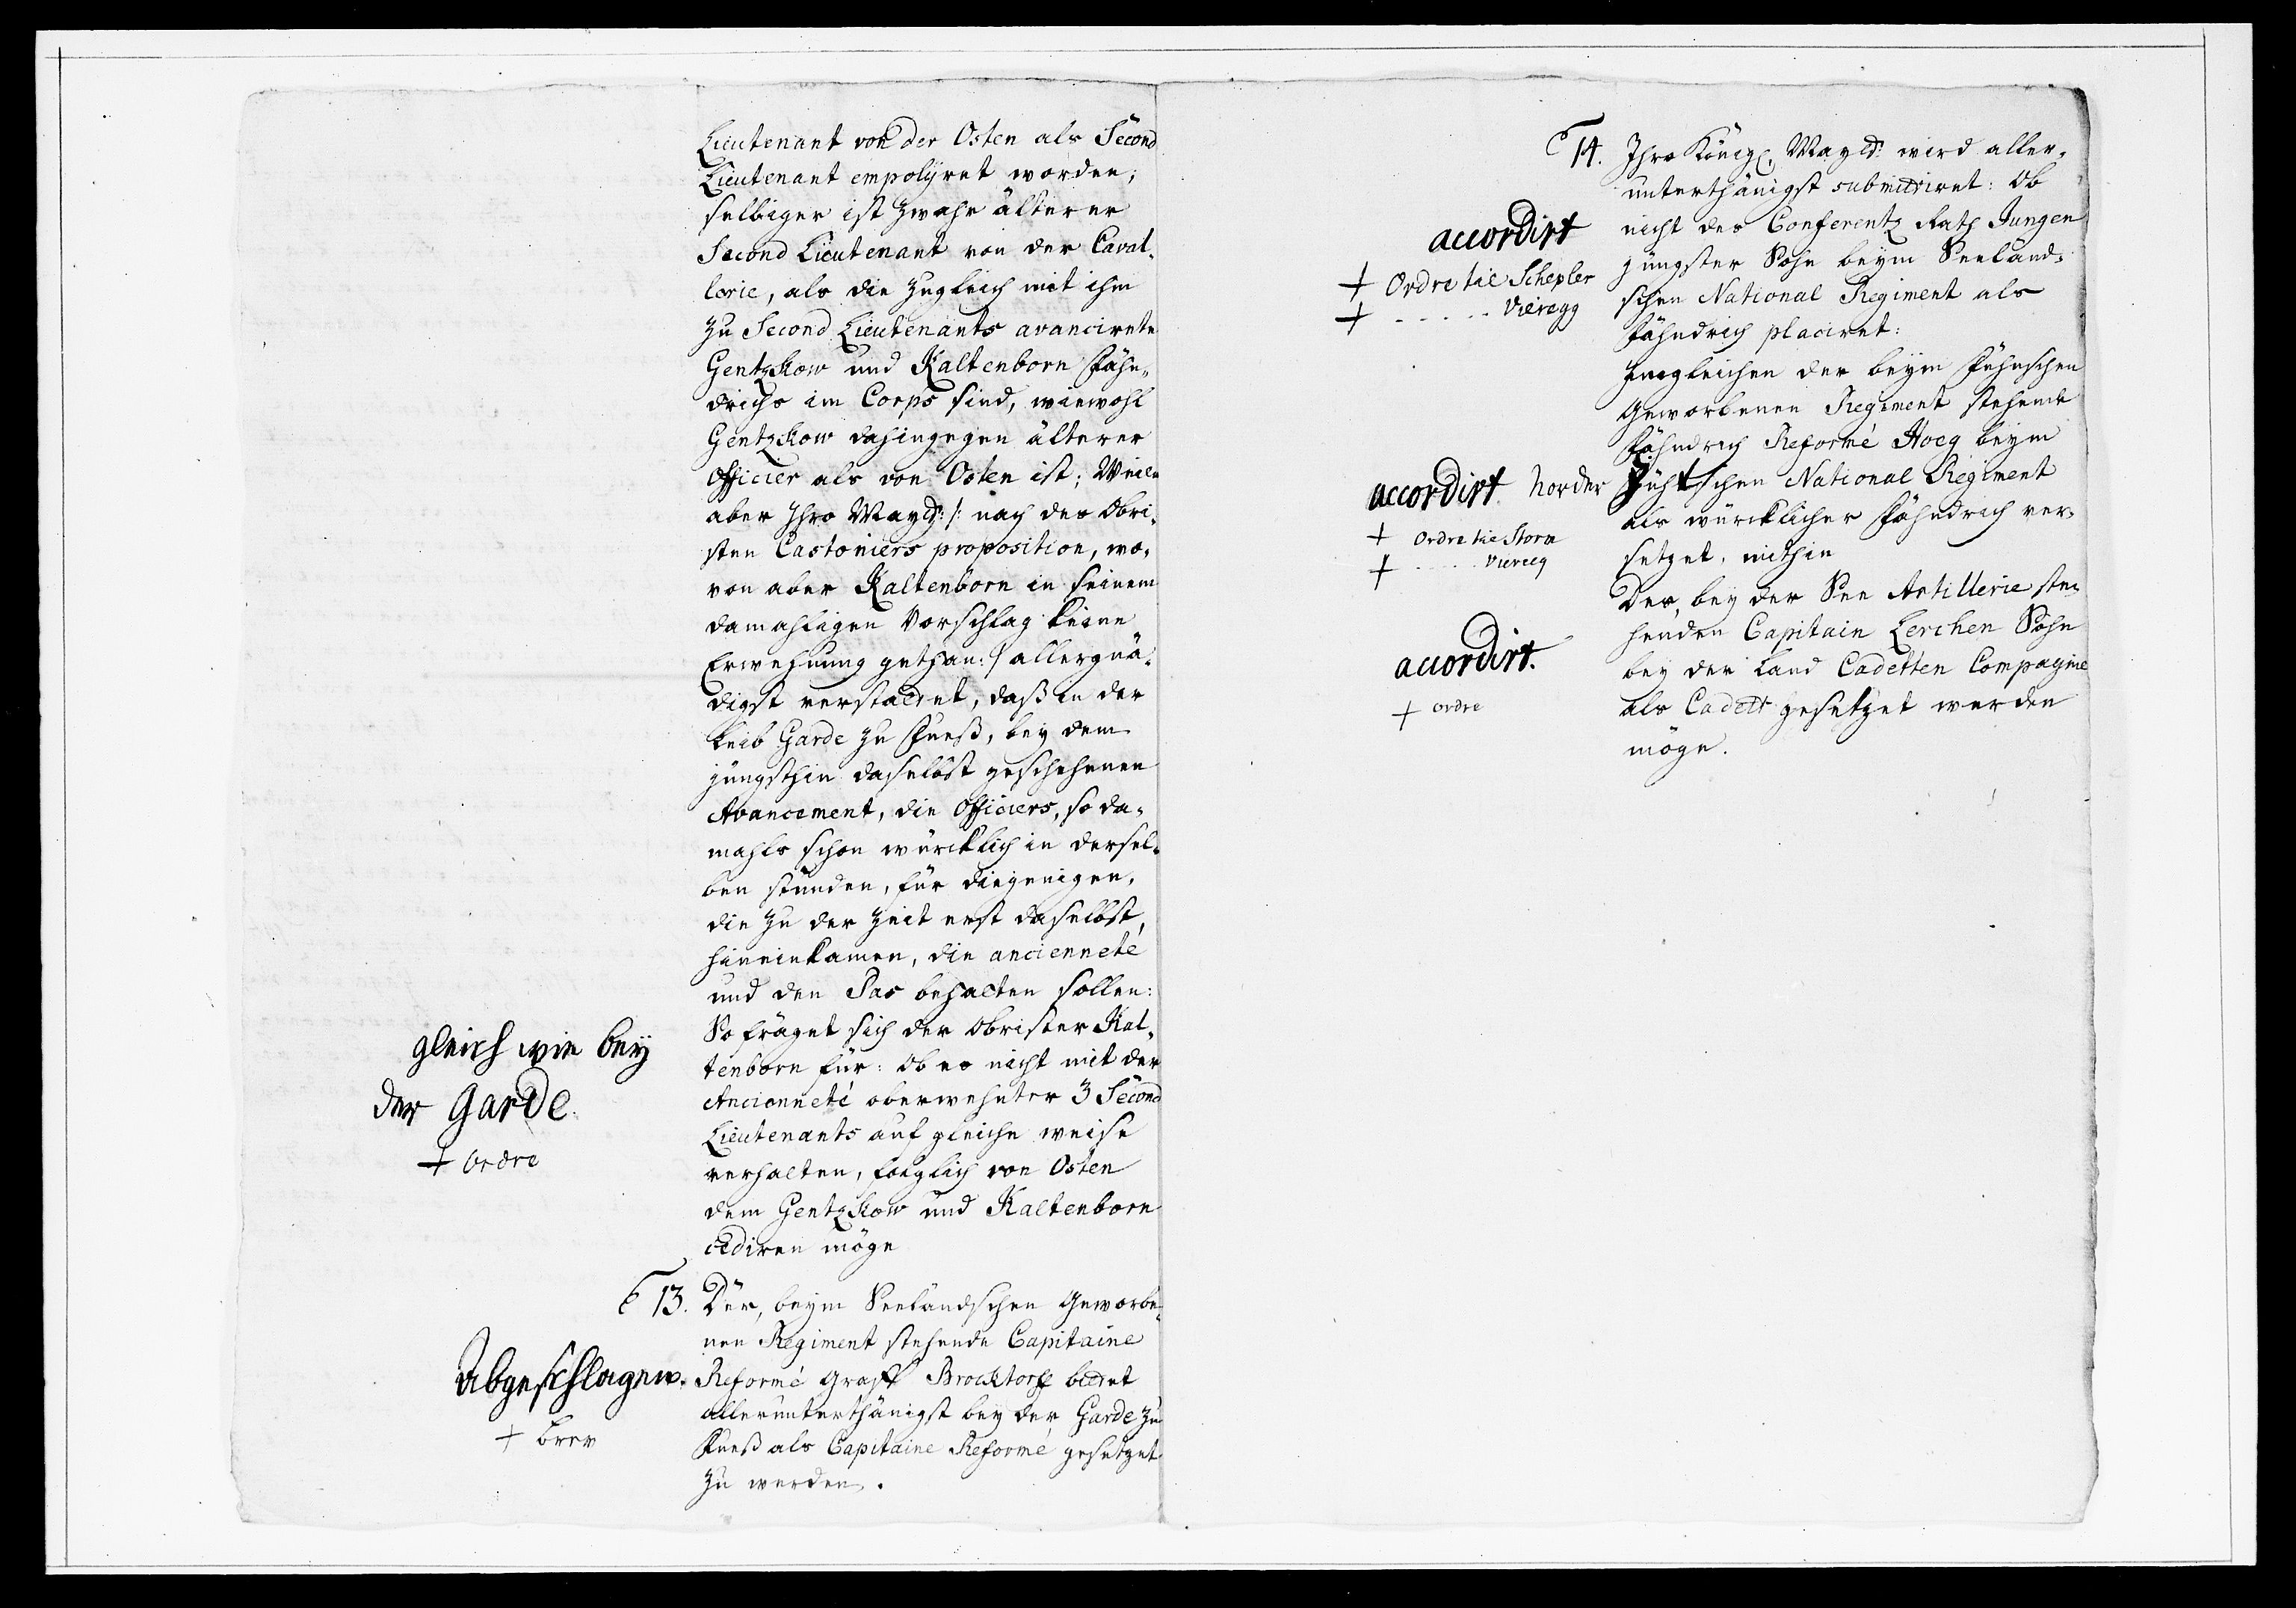 Lieutenant von der Osten als Second
Lieutenant employret worden;
selbiger ist zwahr älterer
Second Lieutenant von der Caval-
lerie, als die zugleich mit ihm
zu Second Lieutenants avancirete
Gentzkow und Kaltenborn Fähn-
drichs im Corps sind, wiewohl
Gentzkow dahingegen älterer
Officier als von Osten ist; Weiln
aber Ihro Mayts: /: nach des Obri-
sten Castoniers proposition, wo-
von aber Kaltenborn in seinem
damahligen Vorschlag keine
Erwehnung gethan: / allergnä-
digst verstattet, daß in der
Leib Garde zu Fueß, bey dem
jüngsthin daselbst geschehenen
Avancement, die Officiers, so da-
mahls schon würcklich in dersel-
ben stunden, für diejenigen,
die zu der Zeit erst daselbst
hineinkamen, die ancienneté
und den Pas behalten sollen:
So fräget sich der Obrister Kal-
tenborn für: Ob es nicht mit der
Ancienneté oberwehnter 3 Second
Lieutenants auf gleiche weise
verhalten, folglich von Osten
dem Gentzkow und Kaltenborn
cediren möge
gleich wie bey
der Garde.
+ Ordre
13. Der, beym Seelandschen Geworbe-
nen Regiment stehende Capitaine
Reformé Graff Brocktorff bittet
allerunterthänigst bey der Garde zu
Fueß als Capitaine Reformé gesetzet
zu werden.
Abgeschlagen.
+ brev
14. Ihro Königl. Mayts: wird aller-
unterthänigst submittiret: Ob
nicht des Conferentz Rath Jungen
jüngster Sohn beym Seeland-
schen National Regiment als
Fähndrich placiret:
accordirt
+ Ordre til Schepler
+ - - - - - Vieregg
Imgleichen der beym Fühnschen
Geworbenen Regiment stehende
Fähndrich Reformé Hoeg beym
Norder Jühtschen National Regiment
als würcklicher Fähndrich ver-
setzet, mithin
accordirt
+ Ordre til Storm
+ - - - - - Vieregg
Des, bey der See Artillerie ste-
henden Capitain Lerchen Sohn
bey der Land Cadetten Compagnie
als Cadett gesetzet werden
möge.
accordirt.
+ ordre